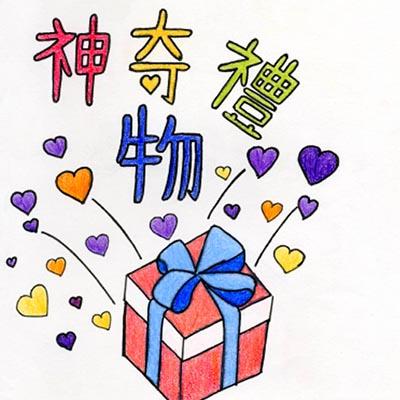 神奇禮
物